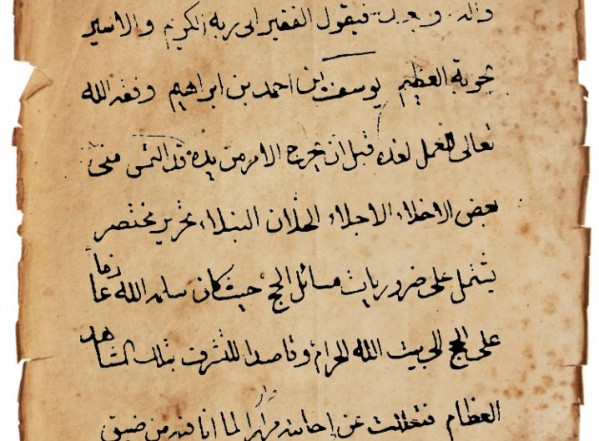 واله وبعد فيقول الفقير الى ربه الكريم والاسير
بحوبة العظيم يوسف ابن احمد بن ابراهيم وفقه الله
تعالى للعمل لغده قبل ان يخرج الامر من يده قد التمس منى
بعض الاخلاء الاجلاء الخلان النبلاء بتحرير مختصر
يشتمل على ضروريات مسائل الحج حيث كان سلمه الله عازما
على الحج الى بيت الله الحرام وقاصدا للتشرف بتلك المشاهد
العظام فتعللت عن اجابته مرارا لما انا فيه من ضيق